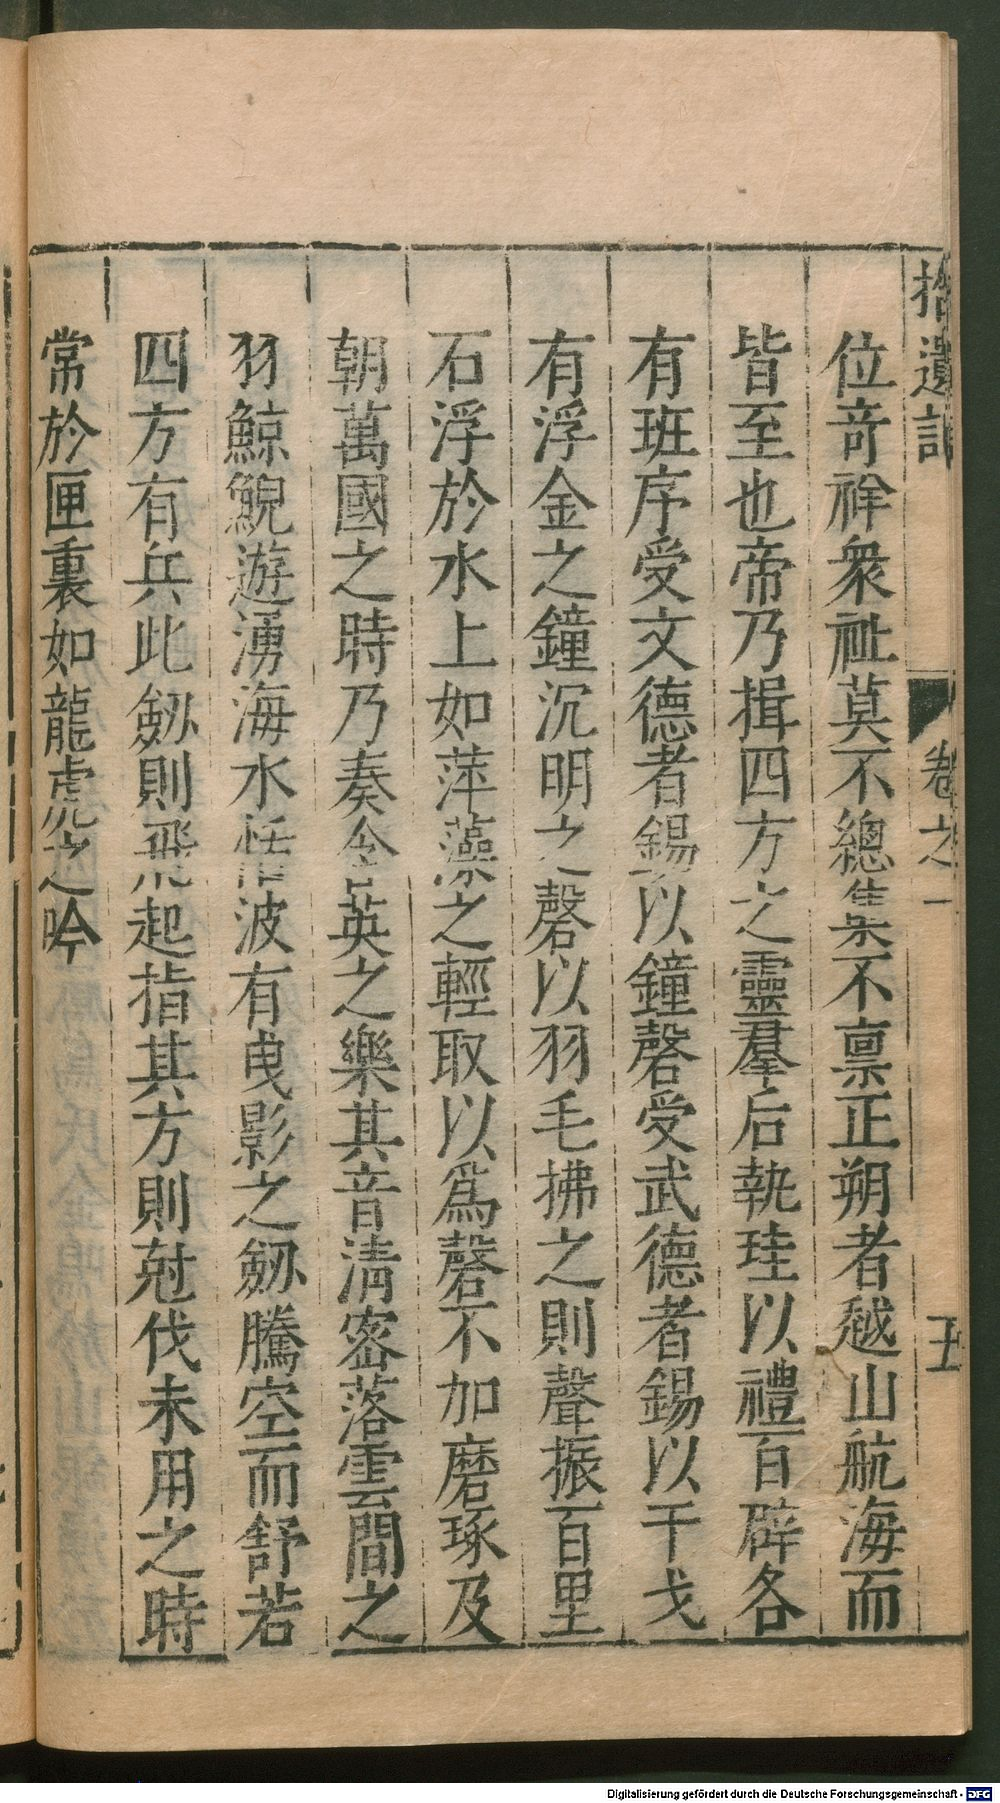 拾遺記 卷之一 五
位奇祥衆祉莫不總集不禀正朔者越山航海而
皆至也帝乃揖四方之靈羣后執珪以禮百辟各
有班序受文德者錫以鐘磬受武德者錫以干戈
有浮金之鐘沉明之磬以羽毛拂之則聲振百里
石浮於水上如萍藻之輕取以爲磬不加磨琢及
朝萬國之時乃奏含英之樂其音清密落雲間之
羽鯨鯢遊湧海水恬波有曳影之劒騰空而舒若
四方有兵此劒則飛起指其方則尅伐未用之時
常於匣裏如龍虎之吟
Digitalisierung gefördert durch die Deutsche Forschungsgemeinschaft - DFG